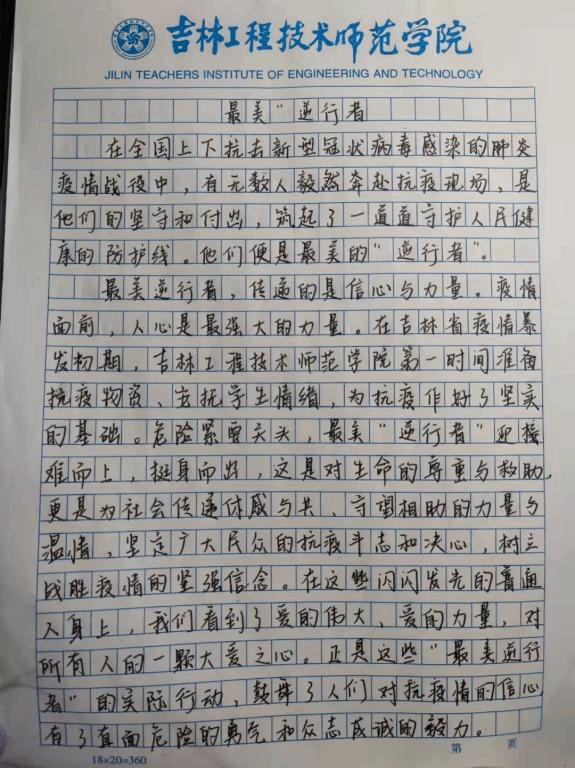 吉林工程技术师范学院
JILIN TEACHERS INSTITUTE OF ENGINEERING AND TECHNOLOGY
最美“逆行者
在全国上下抗击新型冠状病毒感染的肺炎
疫情战役中，有无数人毅然奔赴抗疫现场，是
他们的坚守和付出，筑起了一道道守护人民健
康的防护线。他们便是最美的“逆行者”。
最美逆行者，传递的是信心与力量。疫情
面前，人心是最强大的力量。在吉林省疫情暴
发初期，吉林工程技术师范学院第一时间准备
抗疫物资、安抚学生情绪，为抗疫作好了坚实
的基础。危险紧要关头，最美“逆行者”迎接
难而上，挺身而出，这是对生命的尊重与救助，
更是为社会传递休戚与共、守望相助的力量与
温情，坚定广大民众的抗疫斗志和决心，树立
战胜疫情的坚强信念。在这些闪闪发光的普通
人身上，我们看到了爱的伟大、爱的力量，对
所有人的一颗大爱之心。正是这些“最美逆行
者”的实际行动，鼓舞了人们对抗疫情的信心
有了直面危险的勇气和众志成诚的毅力。
18×20=360
第 页